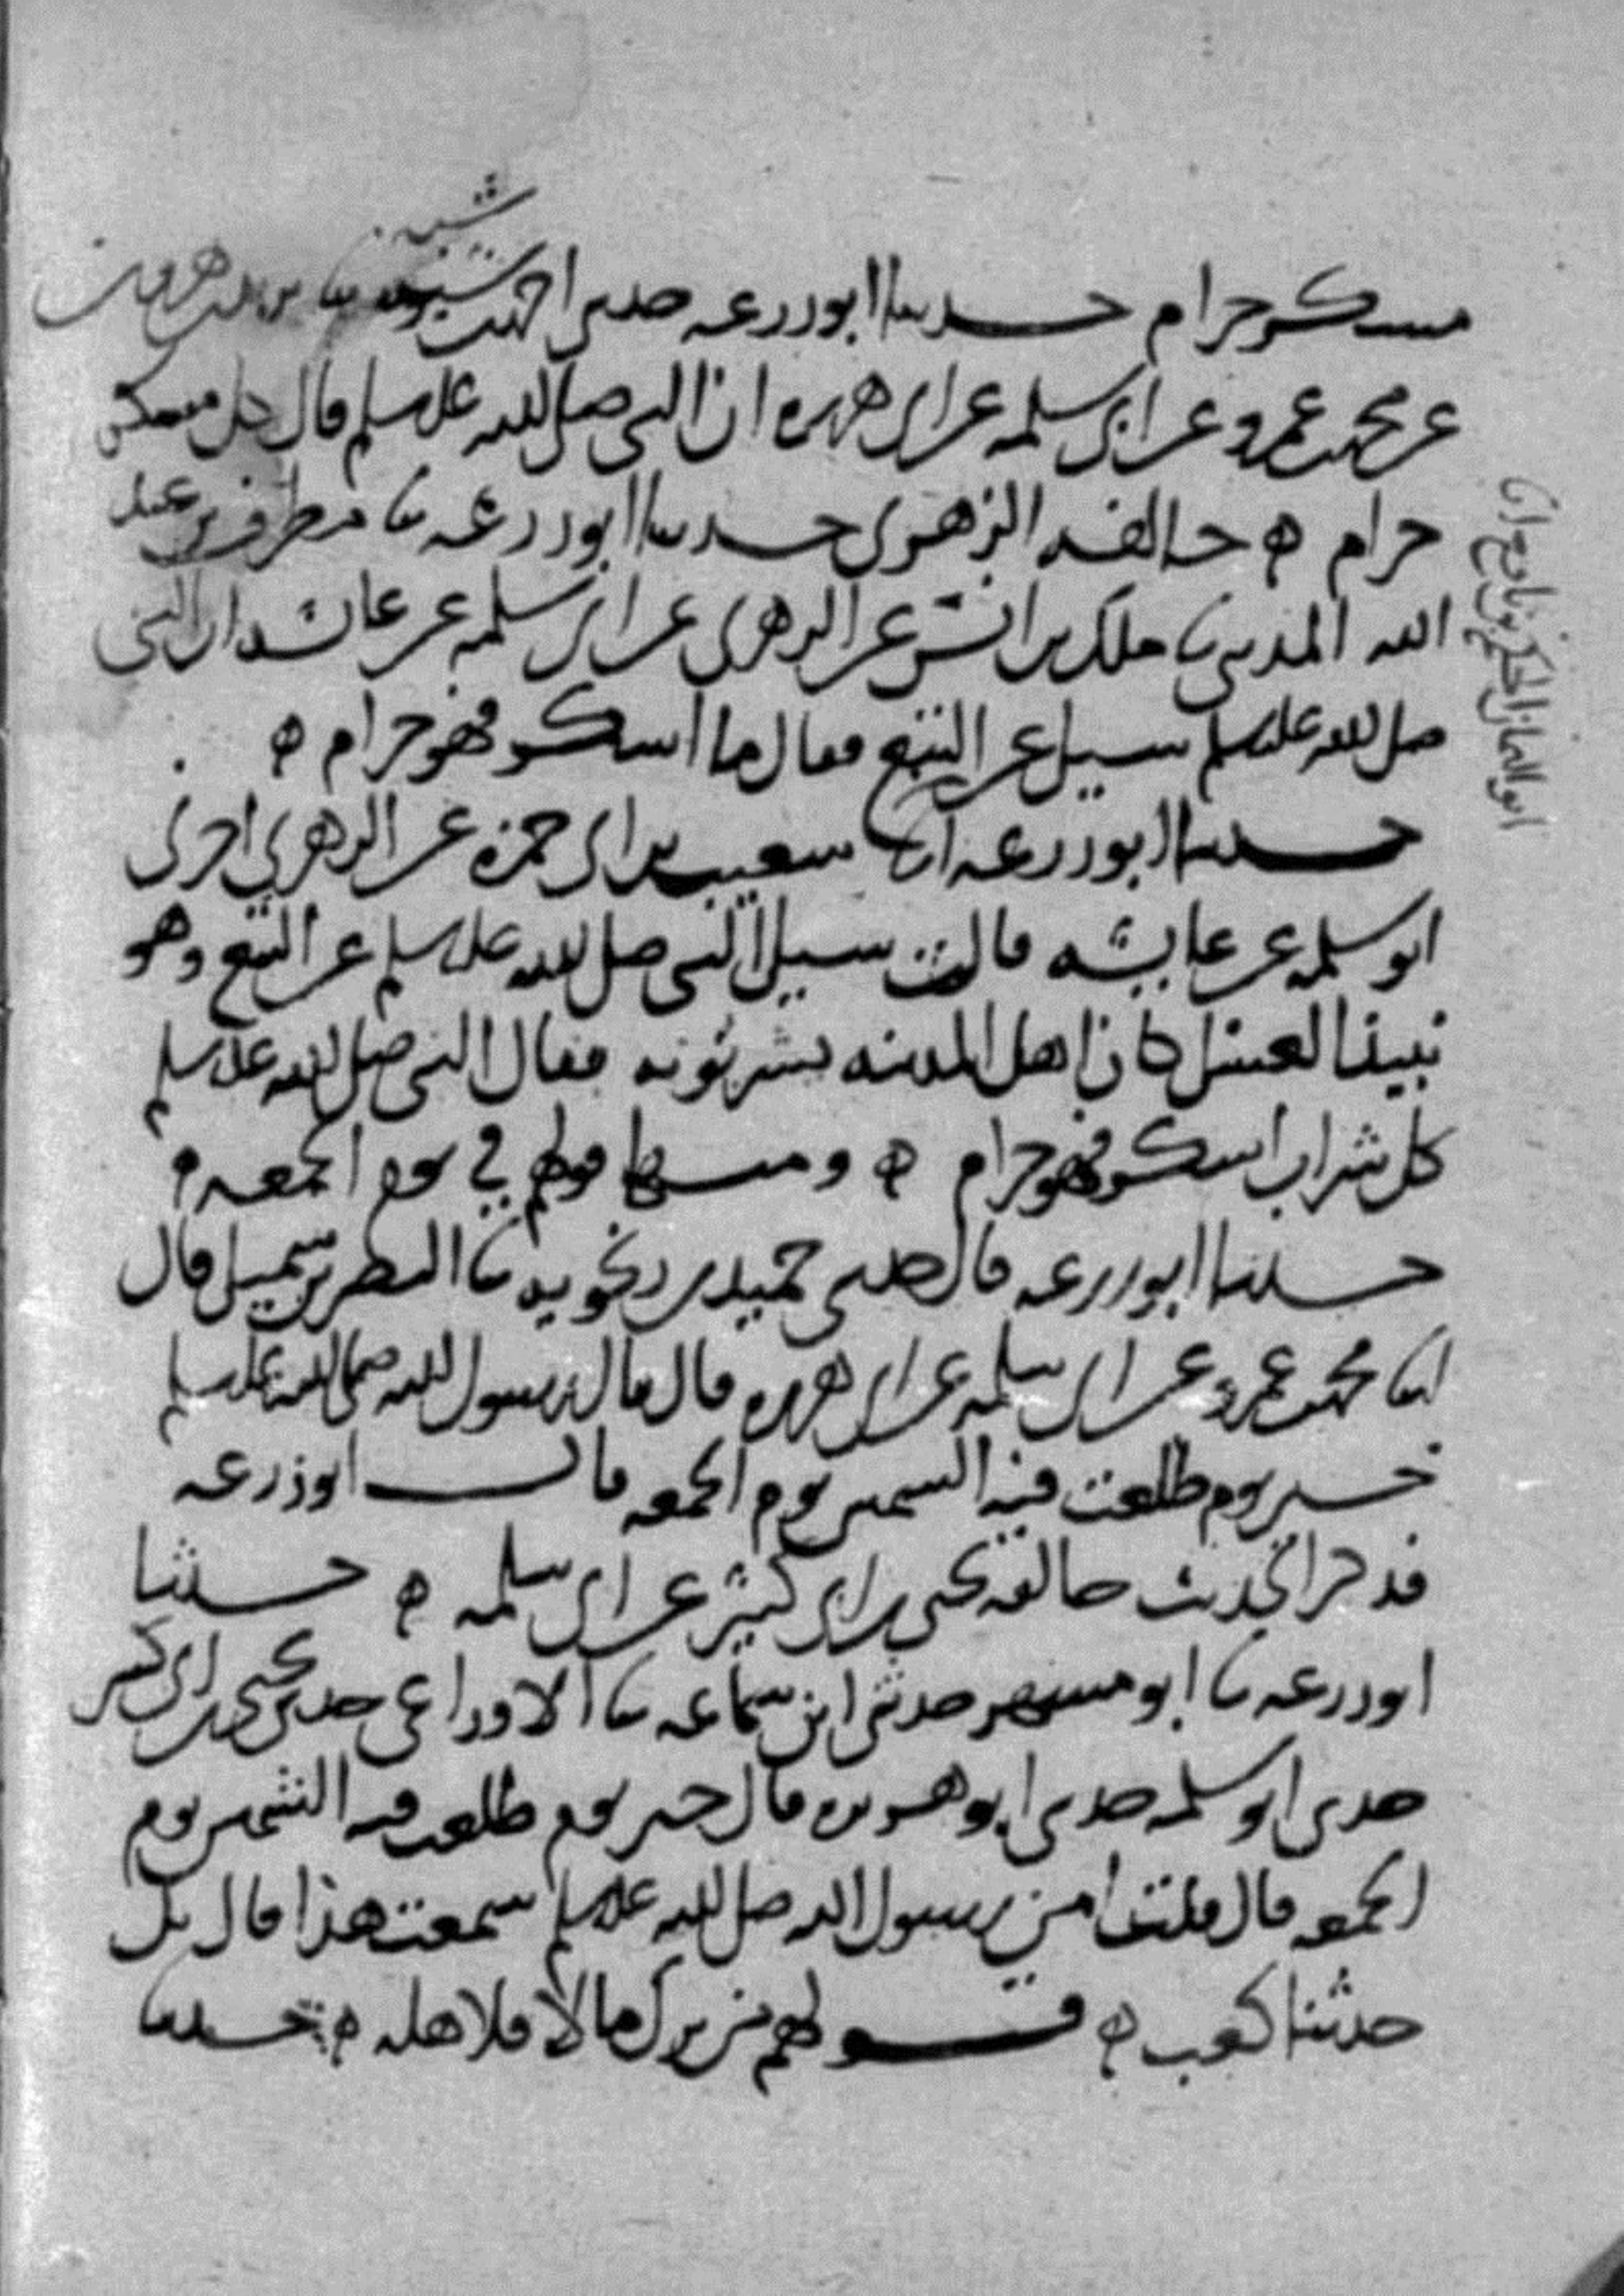 مسكر حرام حدثنا ابو زرعه حدثني احمد بن شبويه نا يزيد بن هرون
شبويه
عن محمد بن عمرو عن ابي سلمه عن ابي هريره ان النبي صلى الله عليه وسلم قال كل مسكر
حرام ه خالفه الزهري حدثنا ابو زرعه نا مطرف بن عبد
الله المديني نا ملك بن انس عن الزهري عن ابي سلمه عن عائشه ان النبي
صلى الله عليه وسلم سيل عن البتع فقال ما اسكر فهو حرام ه
حدثنا ابو زرعه انا شعيب بن ابي حمزه عن الزهري اخبرني
ابو اليمان الحكم بن نافع
ابو سلمه عن عايشه قالت سيل النبي صلى الله عليه وسلم عن البتع وهو
نبيذ العسل كان اهل المدينه يشربونه فقال النبي صلى الله عليه وسلم
كل شراب اسكر فهو حرام ه ومنها قولهم في يوم الجمعه ه
حدثنا ابو زرعه قال حدثني حميد بن زنجويه نا النضر بن شميل قال
انا محمد بن عمرو عن ابي سلمه عن ابي هريره قال قال رسول الله صلى الله عليه وسلم
خير يوم طلعت فيه الشمس يوم الجمعه قال ابو زرعه
فذكر الحديث خالفه يحيى بن ابي كثير عن ابي سلمه ه حدثنا
ابو زرعه نا ابو مسهر حدثني ابن سماعه نا الاوزاعي حدثني يحيى بن ابي كثير
حدثني ابو سلمه حدثني ابو هريره قال خير يوم طلعت فيه الشمس يوم
الجمعه قال قلت امن رسول الله صلى الله عليه وسلم سمعت هذا قال بل
حدثنا كعب ه قولهم من ترك مالا فلاهله ه حدثنا